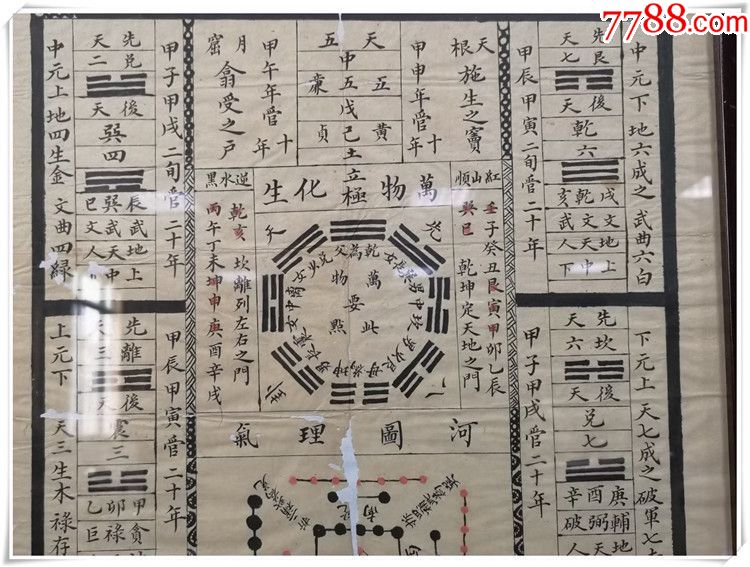 7788.com
中元下地六成之武曲六白
先天
艮七
後天
乾六
戌乾亥
文文武
地天人
上中下
甲辰甲寅二旬管二十年
天根
施生之竇
甲申年管十年
天
五
中
五
五黃
戊己土
廉貞
立極
甲午年管十年
月窟
翕受之戶
先天
兌二
後天
巽四
辰巽巳
武武文
地天人
上中下
甲子甲戌二旬管二十年
中元上地四生金文曲四綠
萬物化生
紅山順
壬子癸丑艮寅甲卯乙辰
癸巳
乾坤定天地之門
逆水黑
乾亥
坎離列左右之門
丙午丁未坤申庚酉辛戌
萬物要
此點
河圖理氣
下元上天七成之破軍七
先天
坎六
後天
兌七
庚酉辛
輔弼破
地天人
甲子甲戌管二十年
先天
離三
後天
震三
甲卯乙
貪祿巨
甲辰甲寅管二十年
上元下天三生木祿存